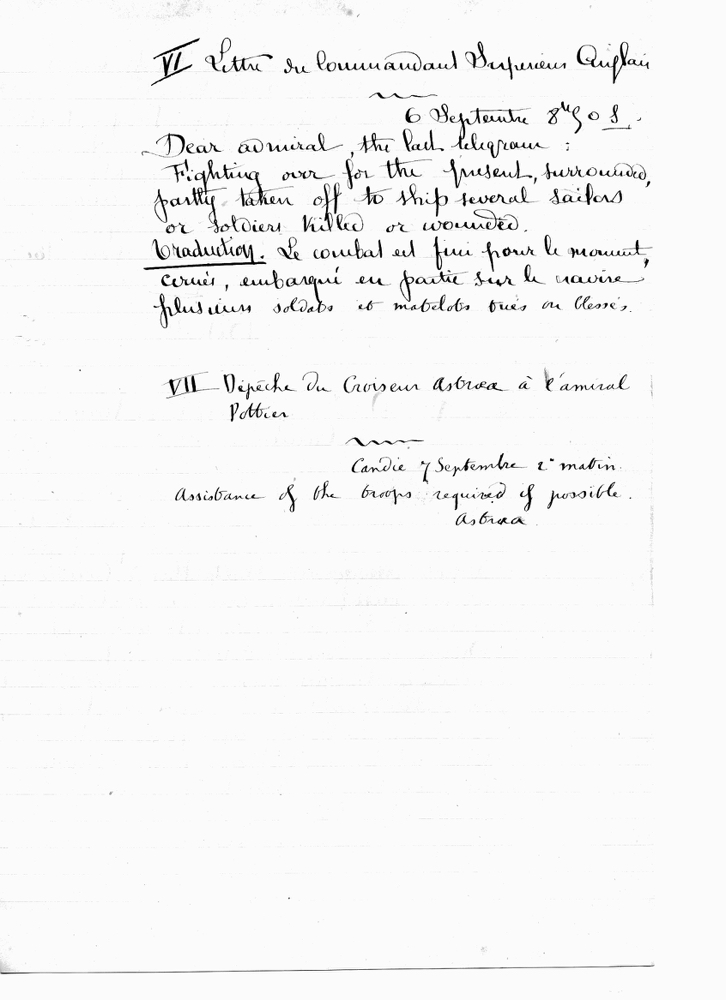 VI Lettre du Commandant Supérieur Anglais
6 Septembre 8h 50 S.
Dear admiral, the last telegram :
Fighting over for the present, surrounded,
partly taken off to ship several sailors
or soldiers killed or wounded.
Traduction. Le combat est fini pour le moment,
cernés, embarqué en partie sur le navire
plusieurs soldats et matelots tués ou blessés.
VII Dépêche du Croiseur Astraea à l'amiral
Pottier
Candie 7 Septembre 2h matin.
Assistance of the troops required if possible.
Astraea